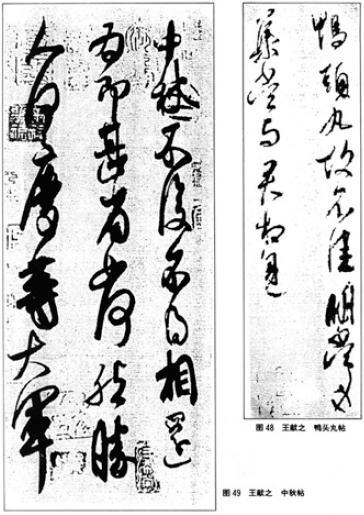 鴨頭丸故不佳明當必
集當與君相見
图 48 王献之 鸭头丸帖
中秋不復不得相還
為即甚省如何然勝
人何慶等大軍
图 49 王献之 中秋帖